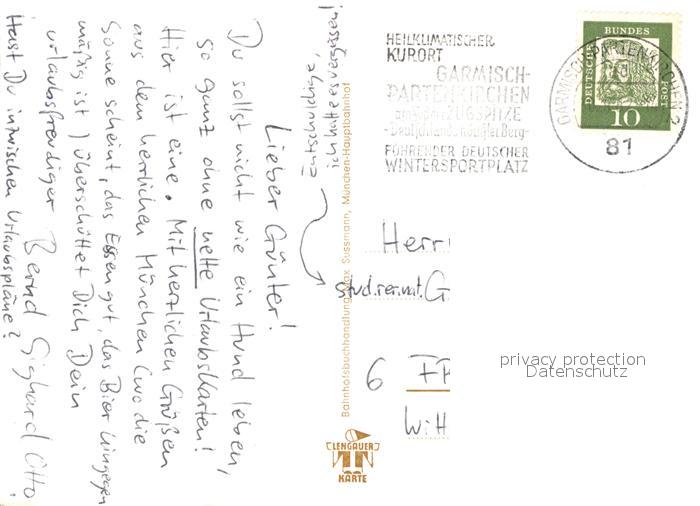 Lieber Günter!
Du sollst nicht wie ein Hund leben,
so ganz ohne nette Urlaubskarten!
Hier ist eine. Mit herzlichen Grüßen
aus dem herrlichen München (wo die
Sonne scheint, das Essen gut, das Bier hingegen
mäßig ist) überschüttet Dich Dein
urlaubsfreudiger Bernd Sighard Otto
Hast Du inzwischen Urlaubspläne?
Entschuldige,
ich hatte es vergessen!
Bahnhofsbuchhandlung Max Sussmann, München-Hauptbahnhof
LENGAUER
KARTE
HEILKLIMATISCHER
KURORT
GARMISCH-
PARTENKIRCHEN
am Fuße der ZUGSPITZE
-Deutschlands höchster Berg-
FÜHRENDER DEUTSCHER
WINTERSPORTPLATZ
GARMISCH-PARTENKIRCHEN 2
81
DEUTSCHE
BUNDES
POST
10
Herr
stud.rer.nat. G
6 FR
Witt
privacy protection
Datenschutz